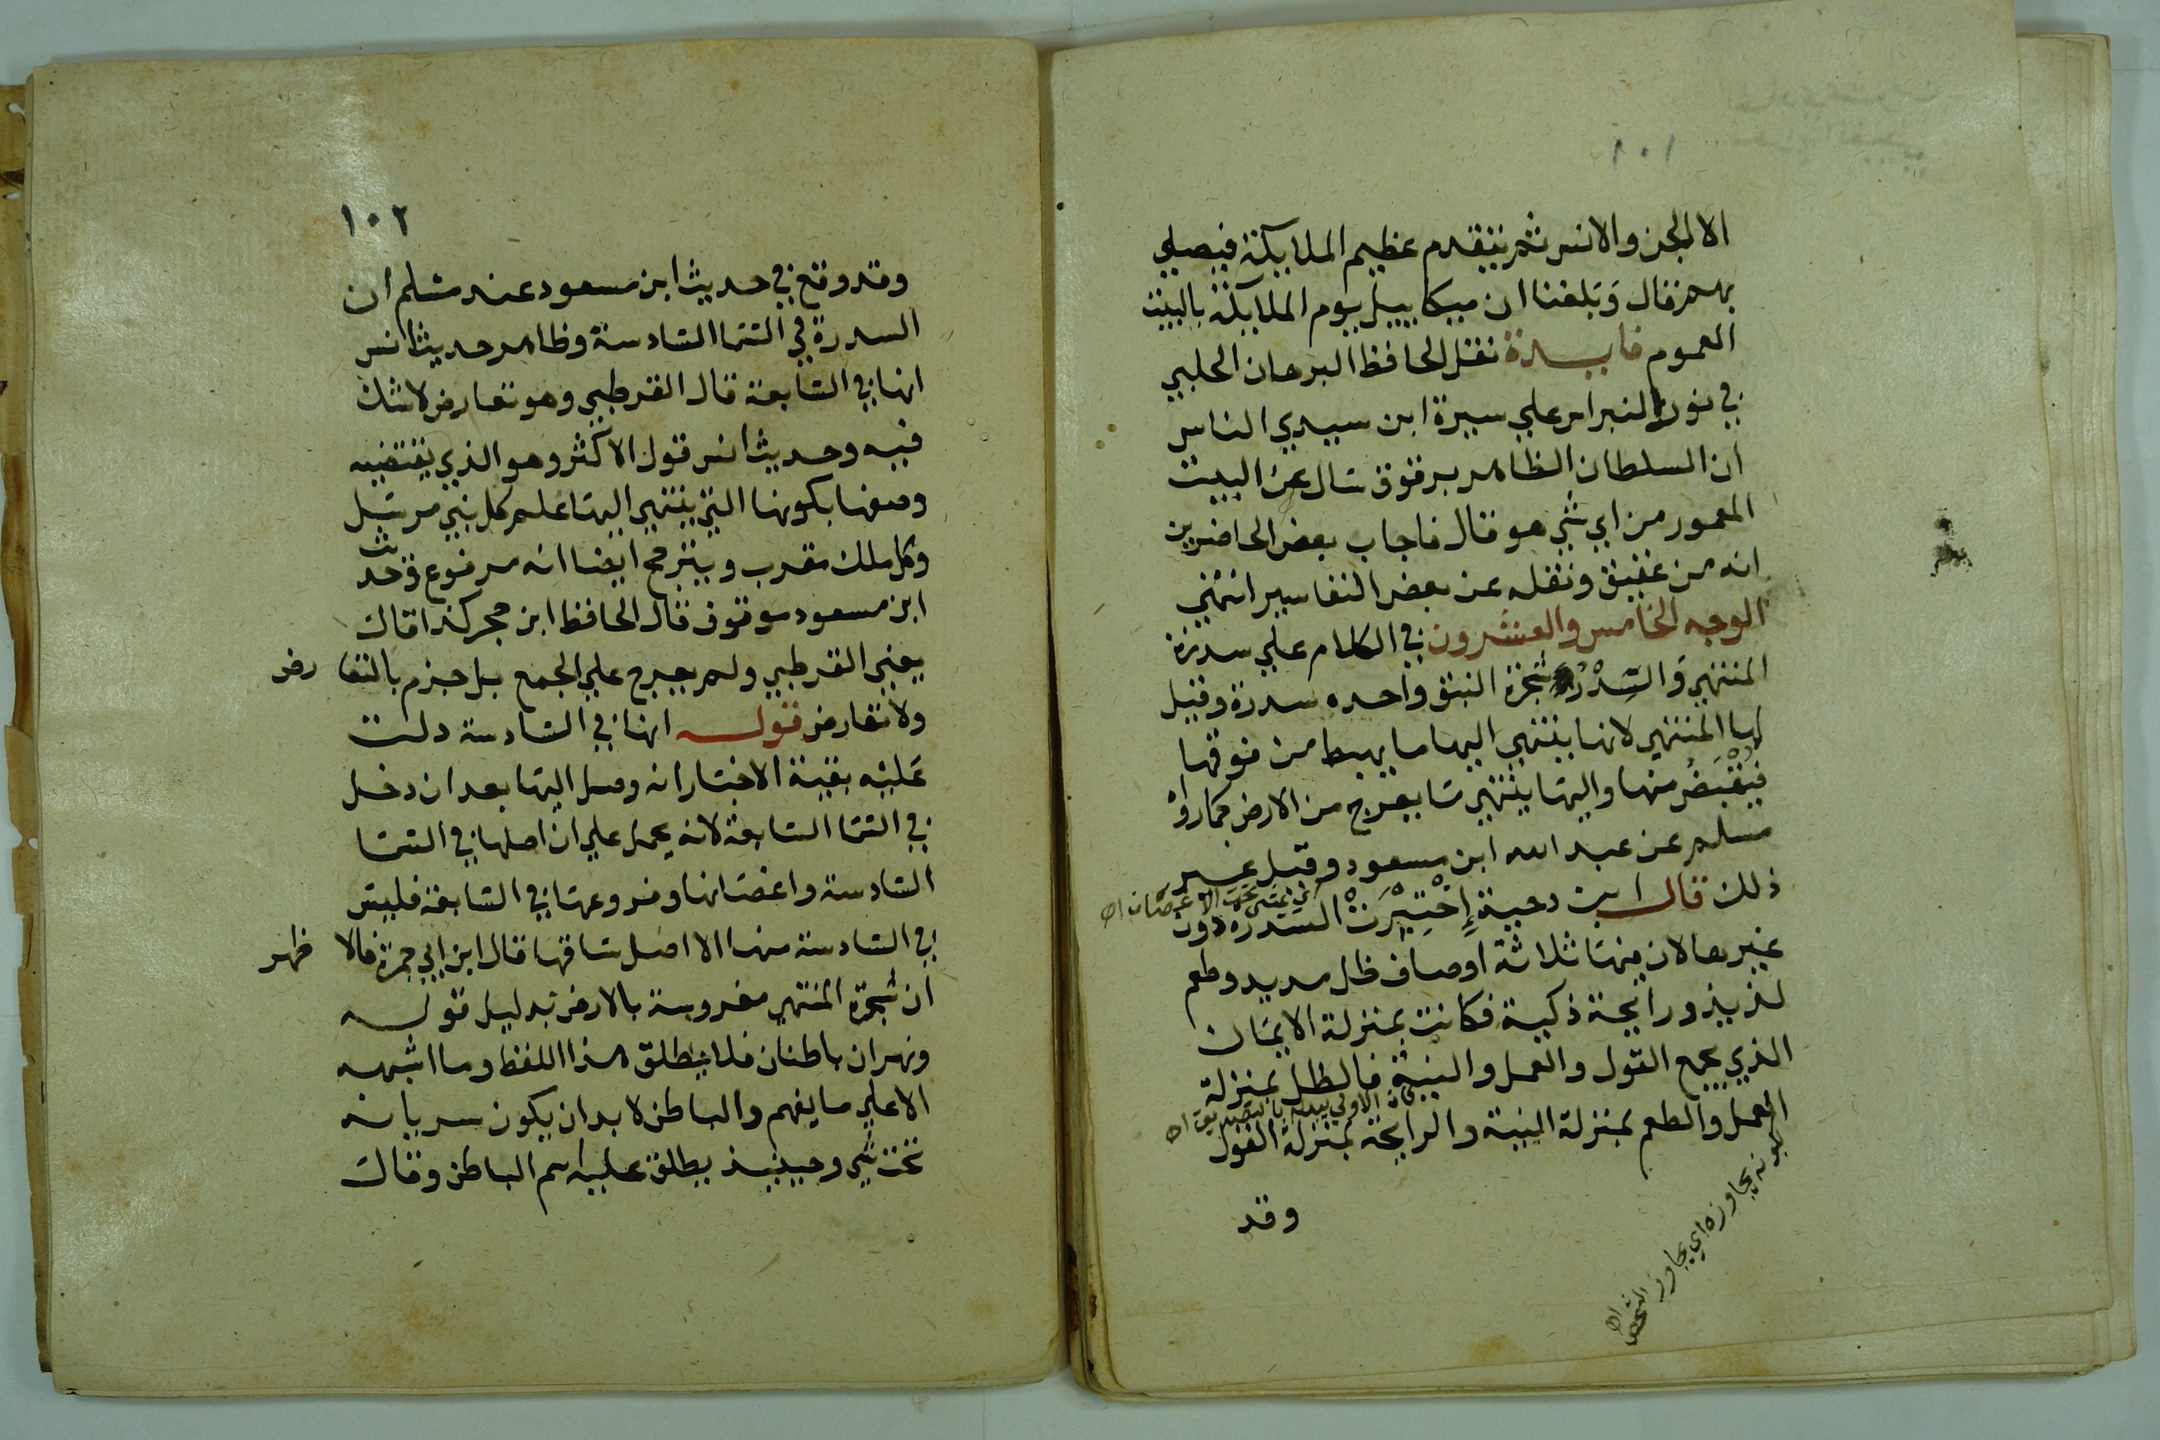 ١٠١
الا الجن والانس ثم يتقدم عظيم الملايكة فيصلي
بهم قال وَبلغنا ان ميكاييل يوم الملايكة بالبيت
العموم فايــدة نقل الحافظ البرهان الحلبي
في نور النبراس علي سيرة ابن سيدي الناس
ان السلطان الظاهر برقوق سال عن البيت
المعمور من اي شي هو قال فاجاب بعض الحاضرين
انه من عقيق ونقله عن بعض التفاسير انتهي
الوجه الخامس والعشرون في الكلام علي سدرة
المنتهي وَالسِّدْر شجرة النبق واحده سدرة وقيل
لها المنتهي لانها ينتهي اليها ما يهبط من فوقها
فيُقْبَضُ منها واليها ينتهي ما يعرج من الارض كما رواه
مسلم عن عبد الله ابن مسعود وقيل غير
ذلك قال ابن دحية اِخْتِيْرَتْ السدره دون
اي يمشي تحت الاغصان اه
غيرها لان فيها ثلاثة اوصاف ظل مديد وطعم
لذيذ ورايحة ذكية فكانت بمنزلة الايمان
الذي يجمع القول والعمل والنية فالظل بمنزلة
العمل والطعم بمنزلة النية والرايحة بمنزلة القول
يجاوزه اي يجاوز الشخص اه
وقد
١٠٢
وقد وقع في حديث ابن مسعود عند مسلم ان
السدرة في السما السادسة وظاهر حديث انس
انها في السابعة قال القرطبي وهو تعارض لا شك
فيه وحديث انس قول الاكثر وهو الذي يقتضيه
وصفها بكونها التي ينتهي اليها علم كل نبي مرسل
وكل ملك مقرب ويترجح ايضا انه مرفوع وحديث
ابن مسعود موقوف قال الحافظ ابن حجر كذا قال
يعني القرطبي ولم يعرج علي الجمع بل جزم بالتعا رض
ولا تعارض قولــه انها في السادسة دلت
عَليْه بقية الاخبار انه وصل اليها بعد ان دخل
في السما السابعة لانه يحمل علي ان اصلها في السما
السادسة واغصانها وفروعها في السابعة فليس
في السادسة منها الا اصل ساقها قال ابن ابي جمرة فالا ظهر
ان شجرة المنتهي مغروسة بالارض بدليل قولــه
ونهران باطنان فلا يطلق هذا اللفظ وما اشبهه
الا علي ما يفهم والباطن لا بد ان يكون سريانه
تحت شي وحينيذ يطلق عليه اسم الباطن وقال